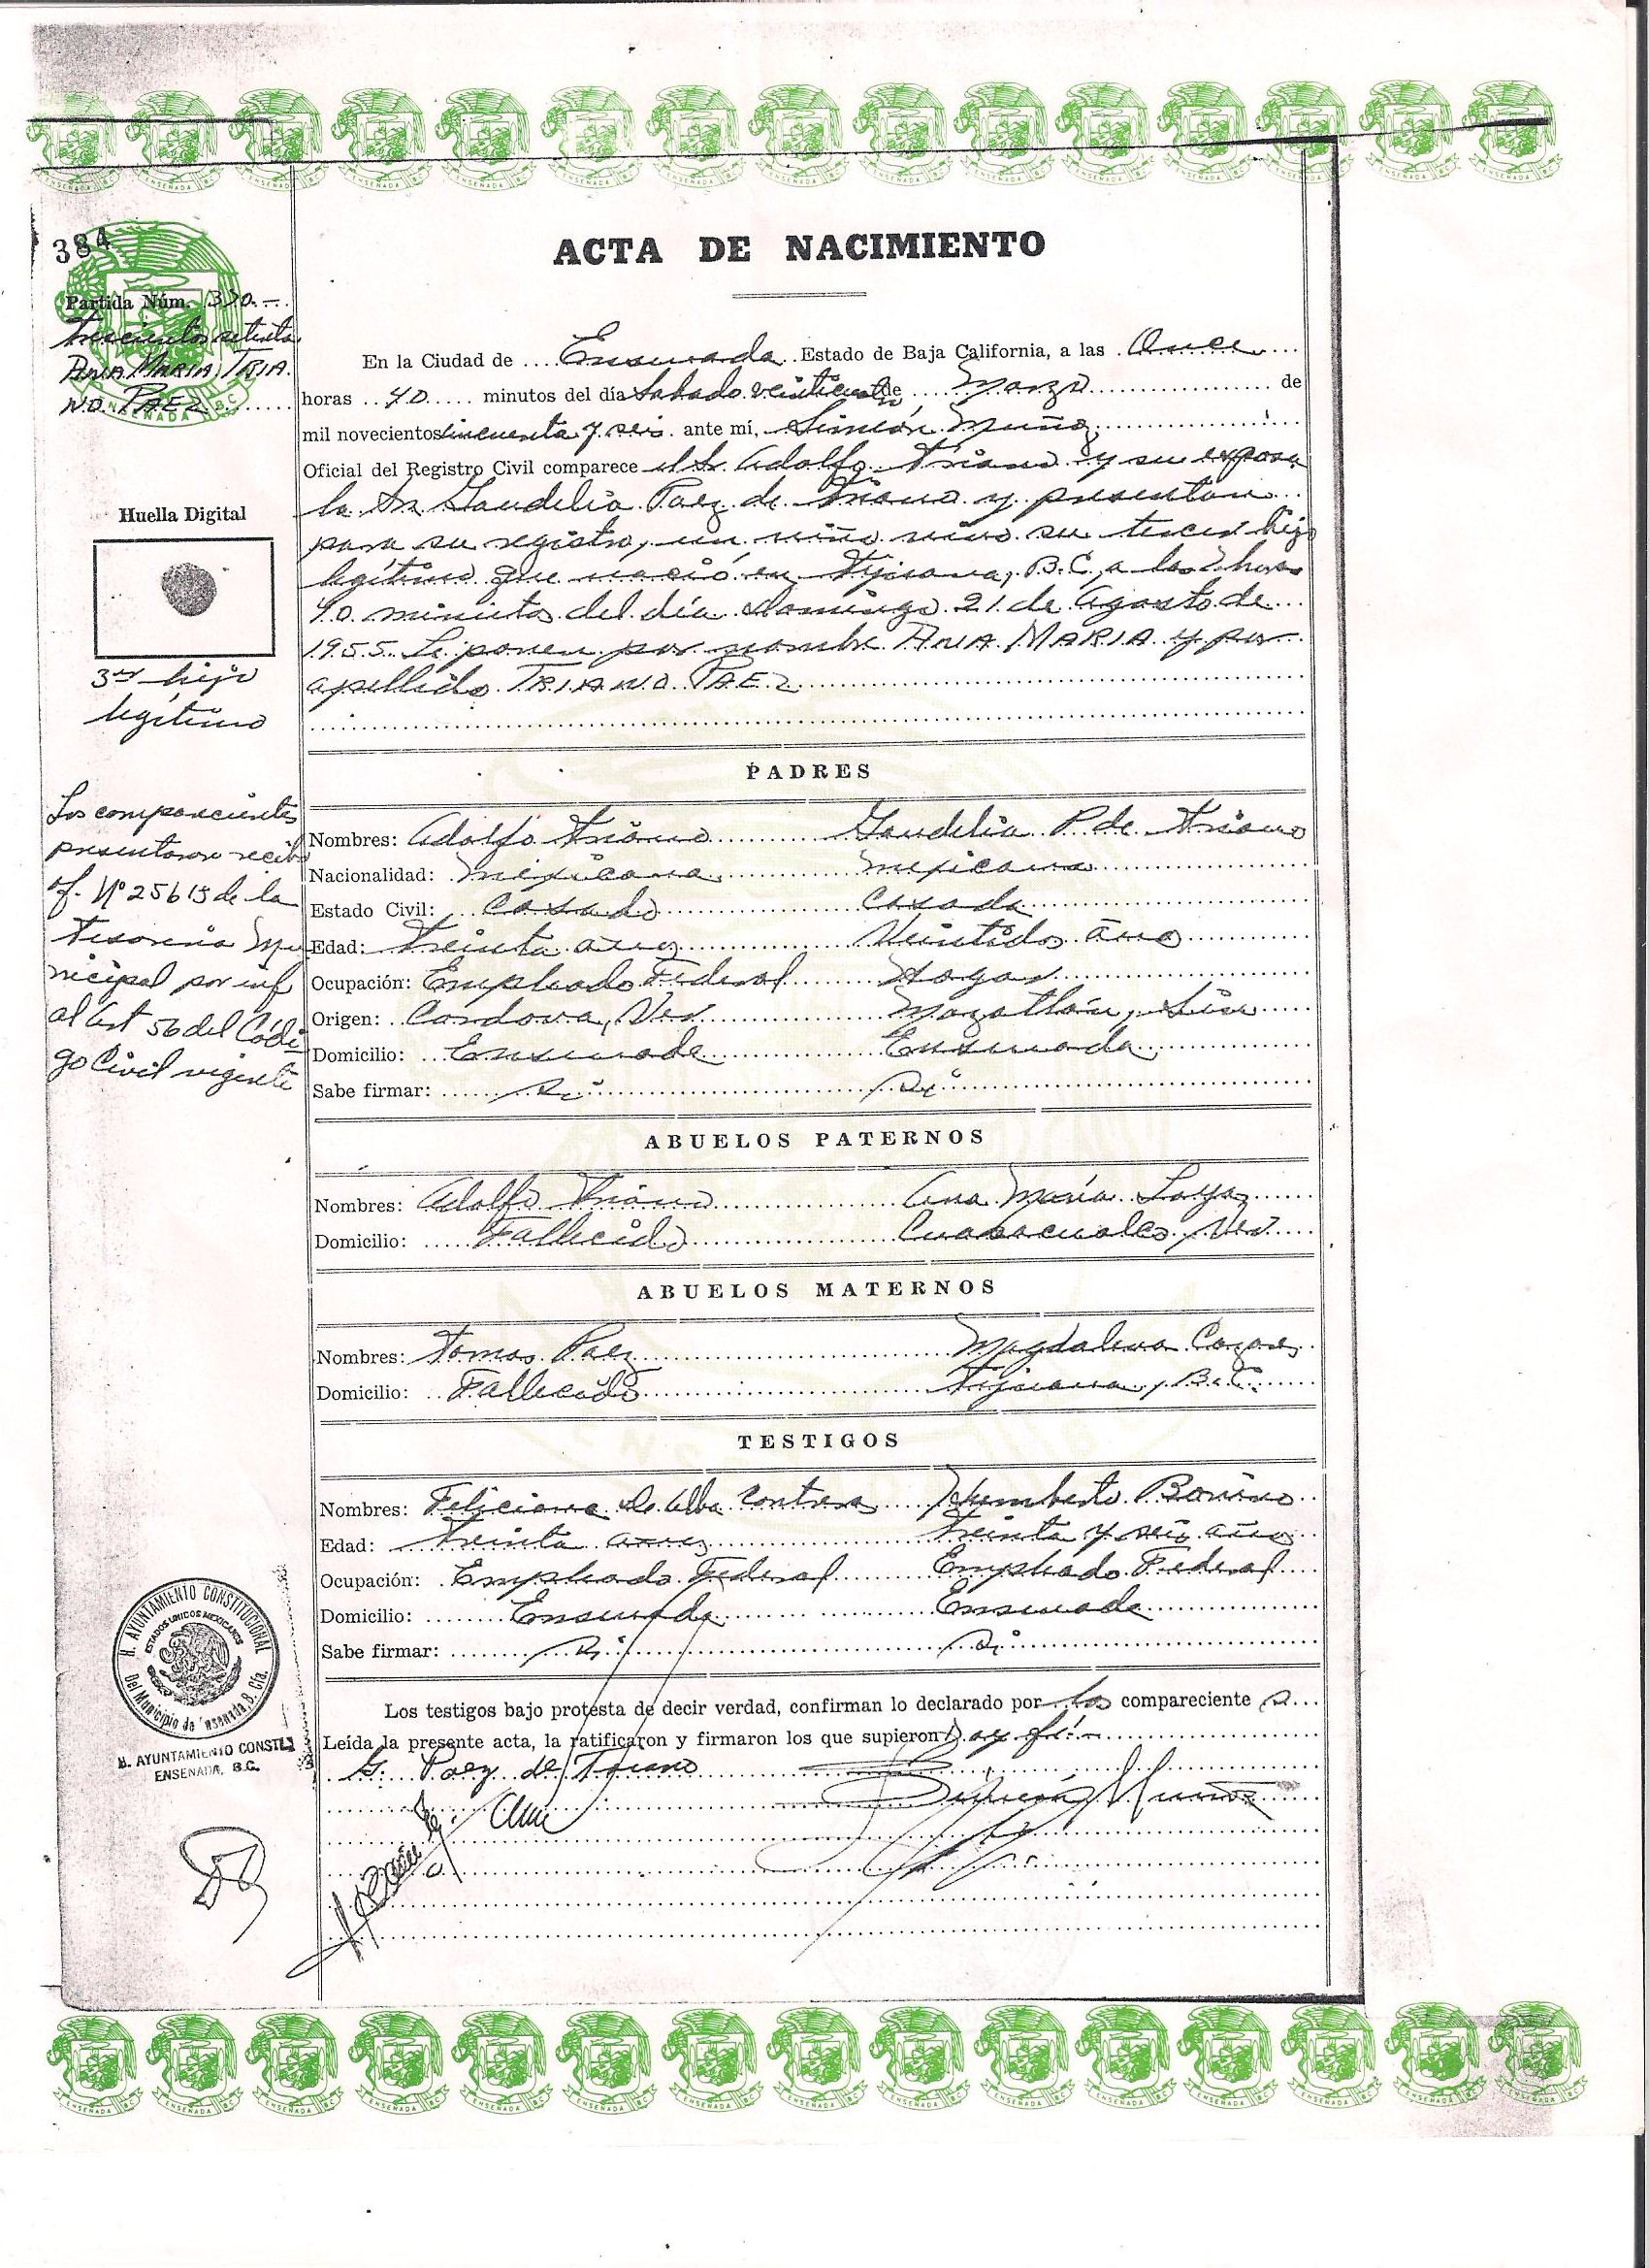 384
ACTA DE NACIMIENTO
Partida Núm. 370.-
trescientos setenta
ANA MARIA TRIA.
NO PAEZ
En la Ciudad de Ensenada Estado de Baja California, a las Once
horas 40 minutos del día Sabado veinticuatro de Marzo de
mil novecientos cincuenta y seis ante mí, Simeón Muñoz
Oficial del Registro Civil comparece el Sr. Adolfo Triano y su esposa
la Sra Gaudelia Paez de Triano y presentan
para su registro, un niño vivo su tercer hijo
legítimo que nació en Tijuana, B.C. a las horas
40 minutos del día domingo 21 de Agosto de
1955. Le ponen por nombre ANA MARIA y por
apellido TRIANO PAEZ
Huella Digital
3er hijo
legítimo
PADRES
Los comparecientes
presentaron recibo
of. Nº 25615 de la
Tesorería Mu
nicipal por inf
al Art 56 del Códi
go Civil vigente
Nombres: Adolfo Triano Gaudelia P. de Triano
Nacionalidad: mexicana mexicana
Estado Civil: Casado Casada
Edad: treinta años Veintidos años
Ocupación: Empleado Federal Hogar
Origen: Cordova, Ver Mazatlán, Sin
Domicilio: Ensenada Ensenada
Sabe firmar: si si
ABUELOS PATERNOS
Nombres: Adolfo Triano Ana María Loya
Domicilio: Fallecido Ver
ABUELOS MATERNOS
Nombres: Tomas Paez Magdalena
Domicilio: Fallecido Tijuana, B.C.
TESTIGOS
Nombres: de Alba Contreras Humberto
Edad: treinta años treinta y seis años
Ocupación: Empleado Federal Empleado Federal
Domicilio: Ensenada Ensenada
Sabe firmar: si si
Los testigos bajo protesta de decir verdad, confirman lo declarado por los compareciente s
Leída la presente acta, la ratificaron y firmaron los que supieron Doy fé.
G. Paez de Triano
Simeón Muñoz
H. AYUNTAMIENTO CONSTITUCIONAL
ESTADOS UNIDOS MEXICANOS
Del Municipio de Ensenada, B. Cfa.
H. AYUNTAMIENTO CONSTL
ENSENADA, B.C.
ENSENADA B.C.